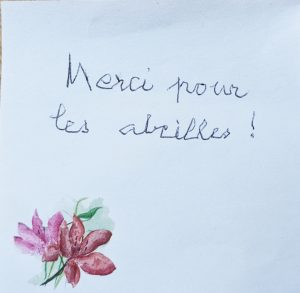 Merci pour
les abeilles !